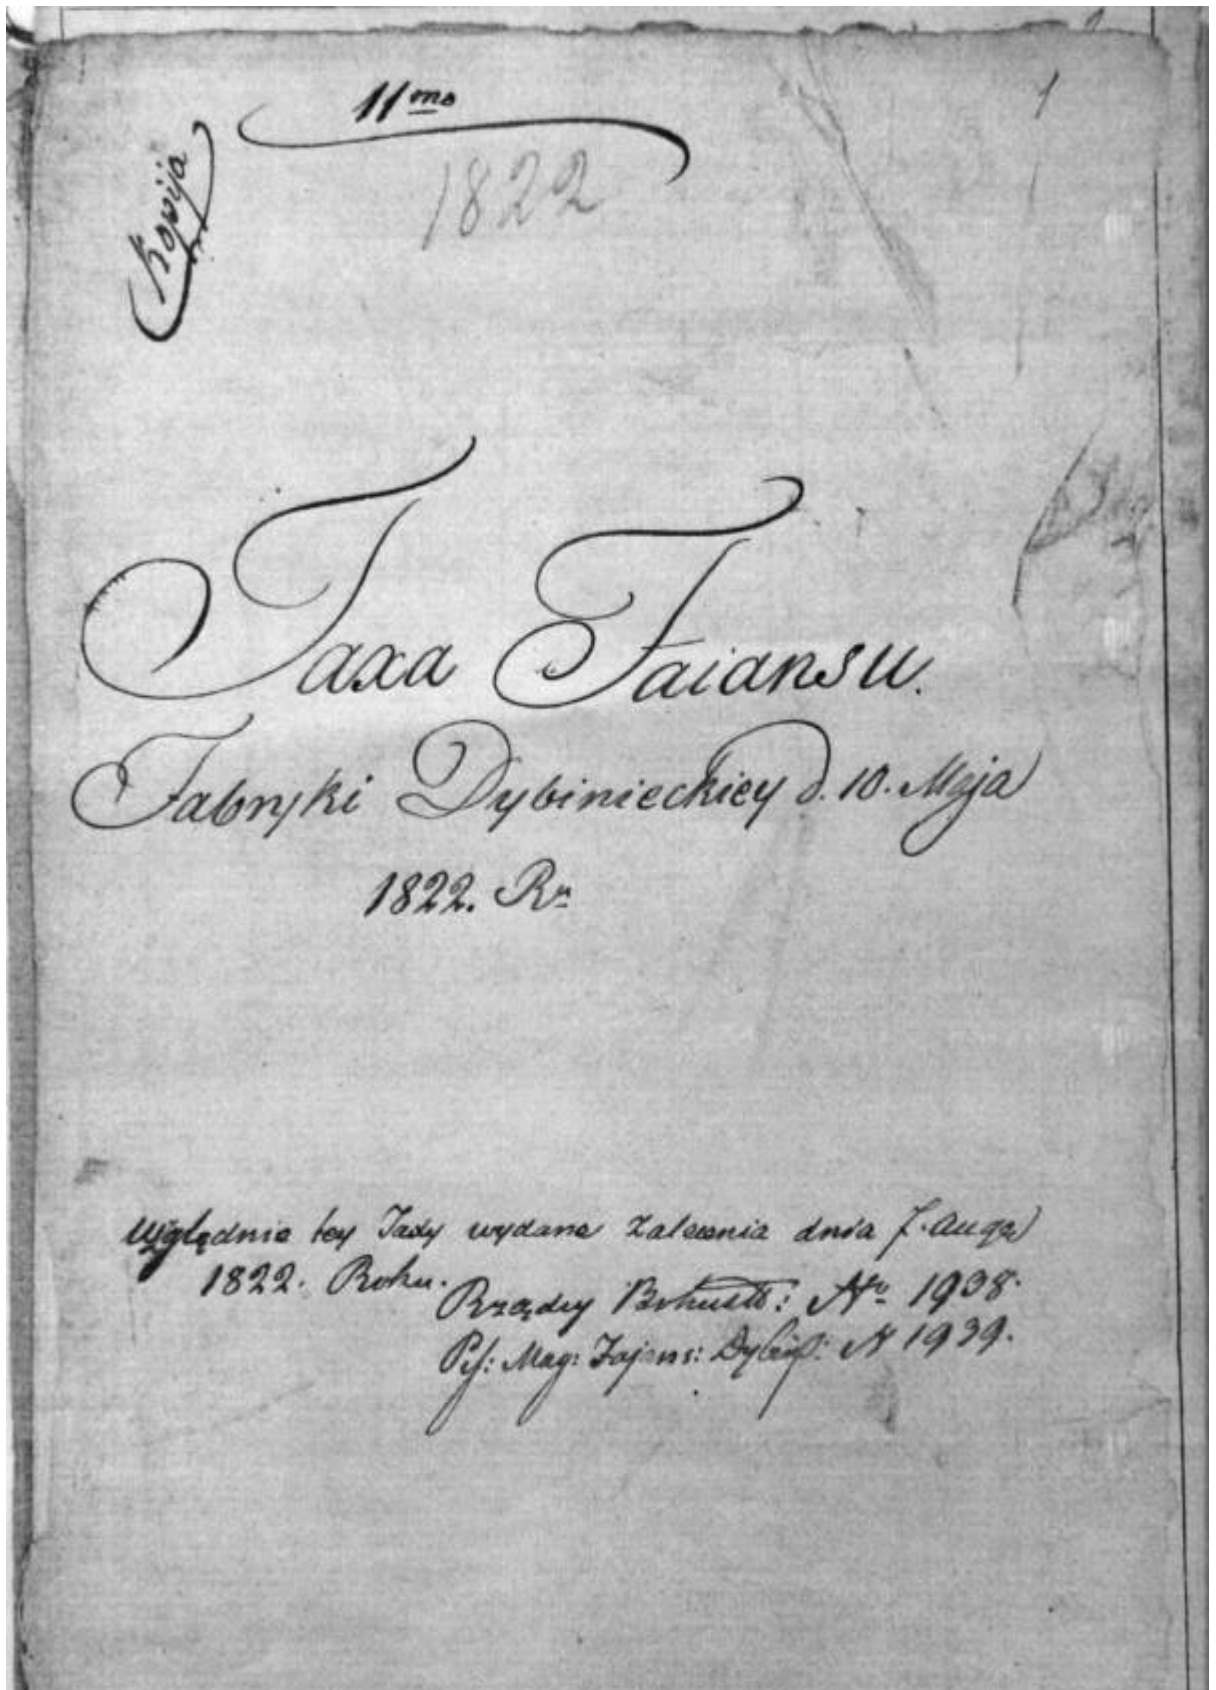 1
11mo
Kopija
1822
Taxa Faiansu.
Fabryki Dybinieckiey d. 10. Maja
1822. Ru
Względnie tey Taxy wydane Zalecenia dnia 7. Auga
1822. Roku.
Rządcy Bohusł: No 1938.
Pis: Mag: Fajans: Dybiń: N 1939.